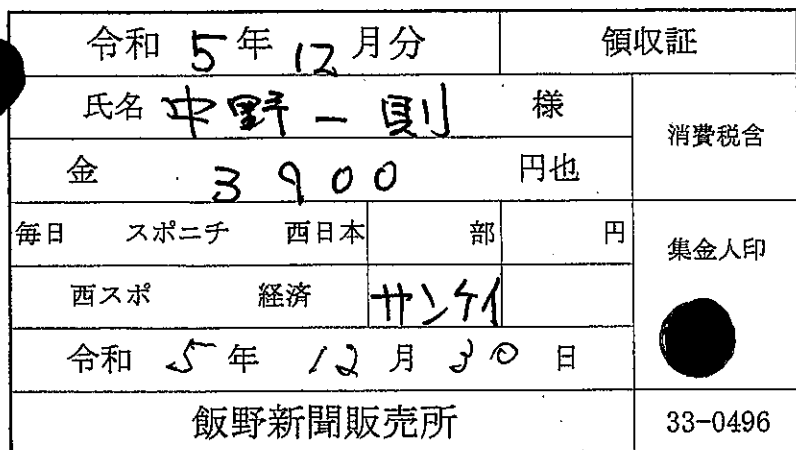 令和 5年 12月分 領収証
氏名 中野一則 様 消費税含
金 3900 円也
毎日 スポニチ 西日本 部 円 集金人印
西スポ 経済 サンケイ
令和 5年 12月 30日
飯野新聞販売所 33-0496